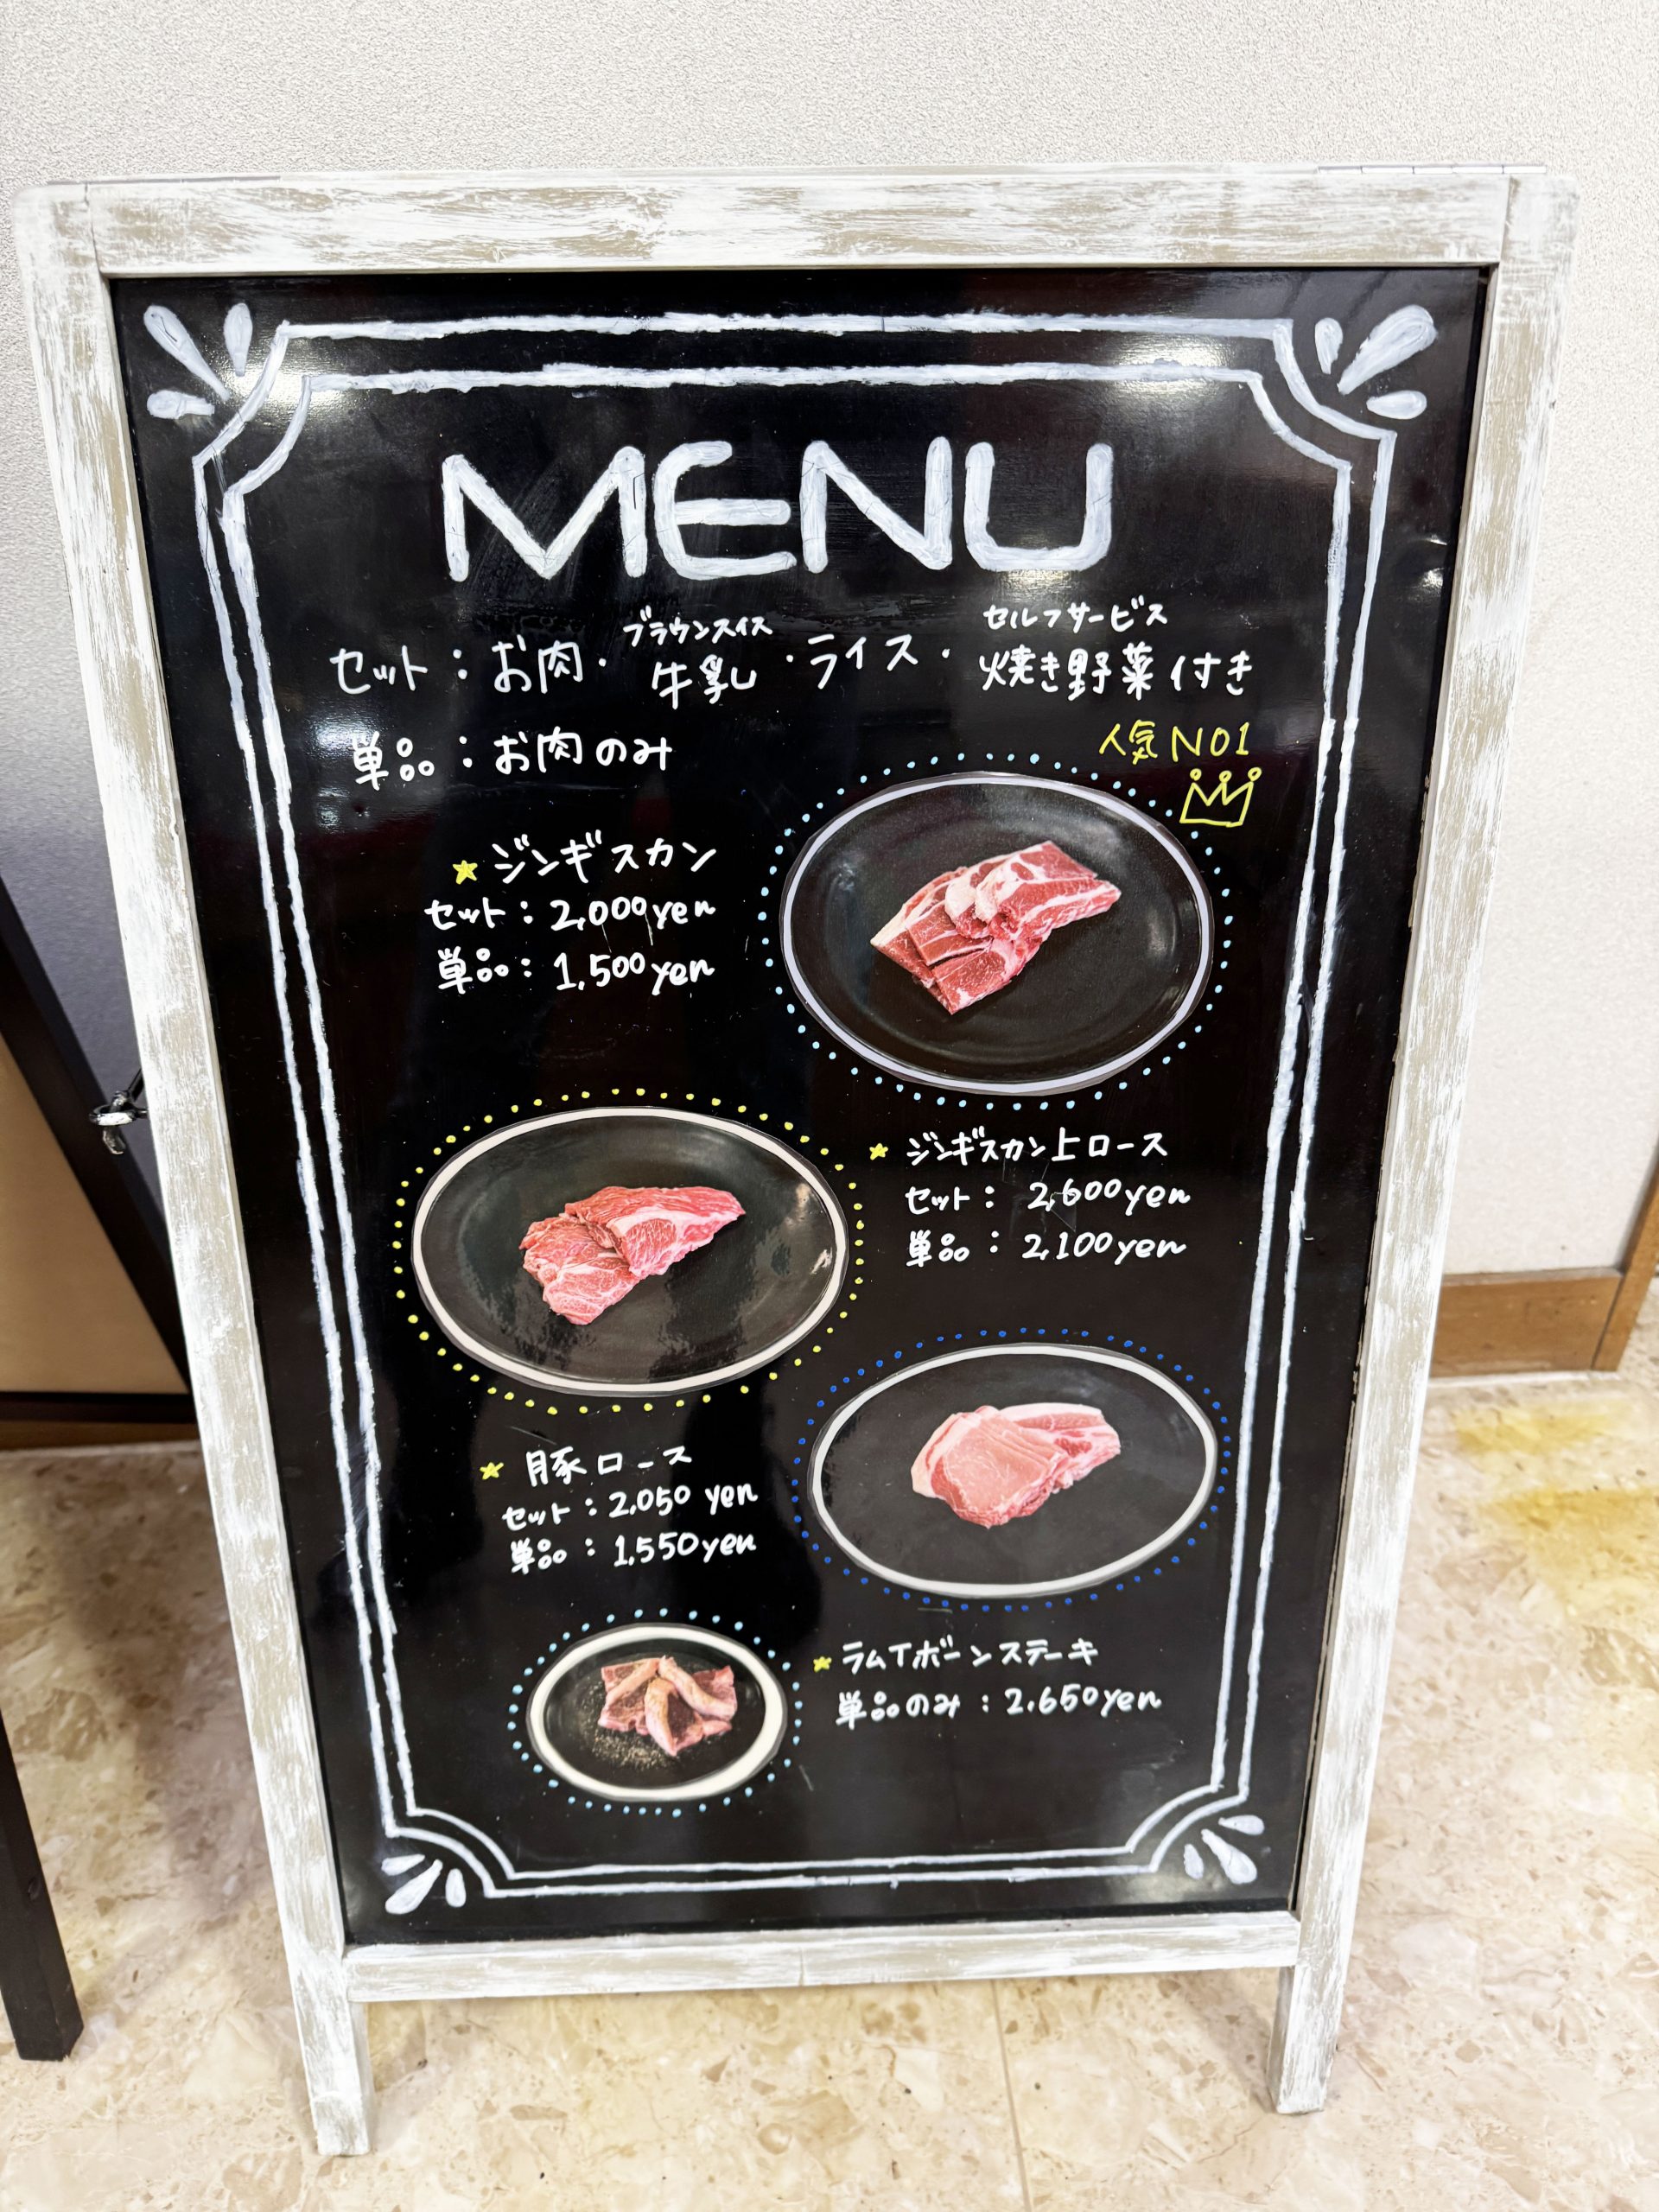 MENU
ブラウンスイス セルフサービス
セット：お肉・牛乳・ライス・焼き野菜付き
単品：お肉のみ
人気NO1
ジンギスカン
セット：2,000yen
単品：1,500yen
ジンギスカン上ロース
セット：2,600yen
単品：2,100yen
豚ロース
セット：2,050yen
単品：1,550yen
ラムTボーンステーキ
単品のみ：2,650yen